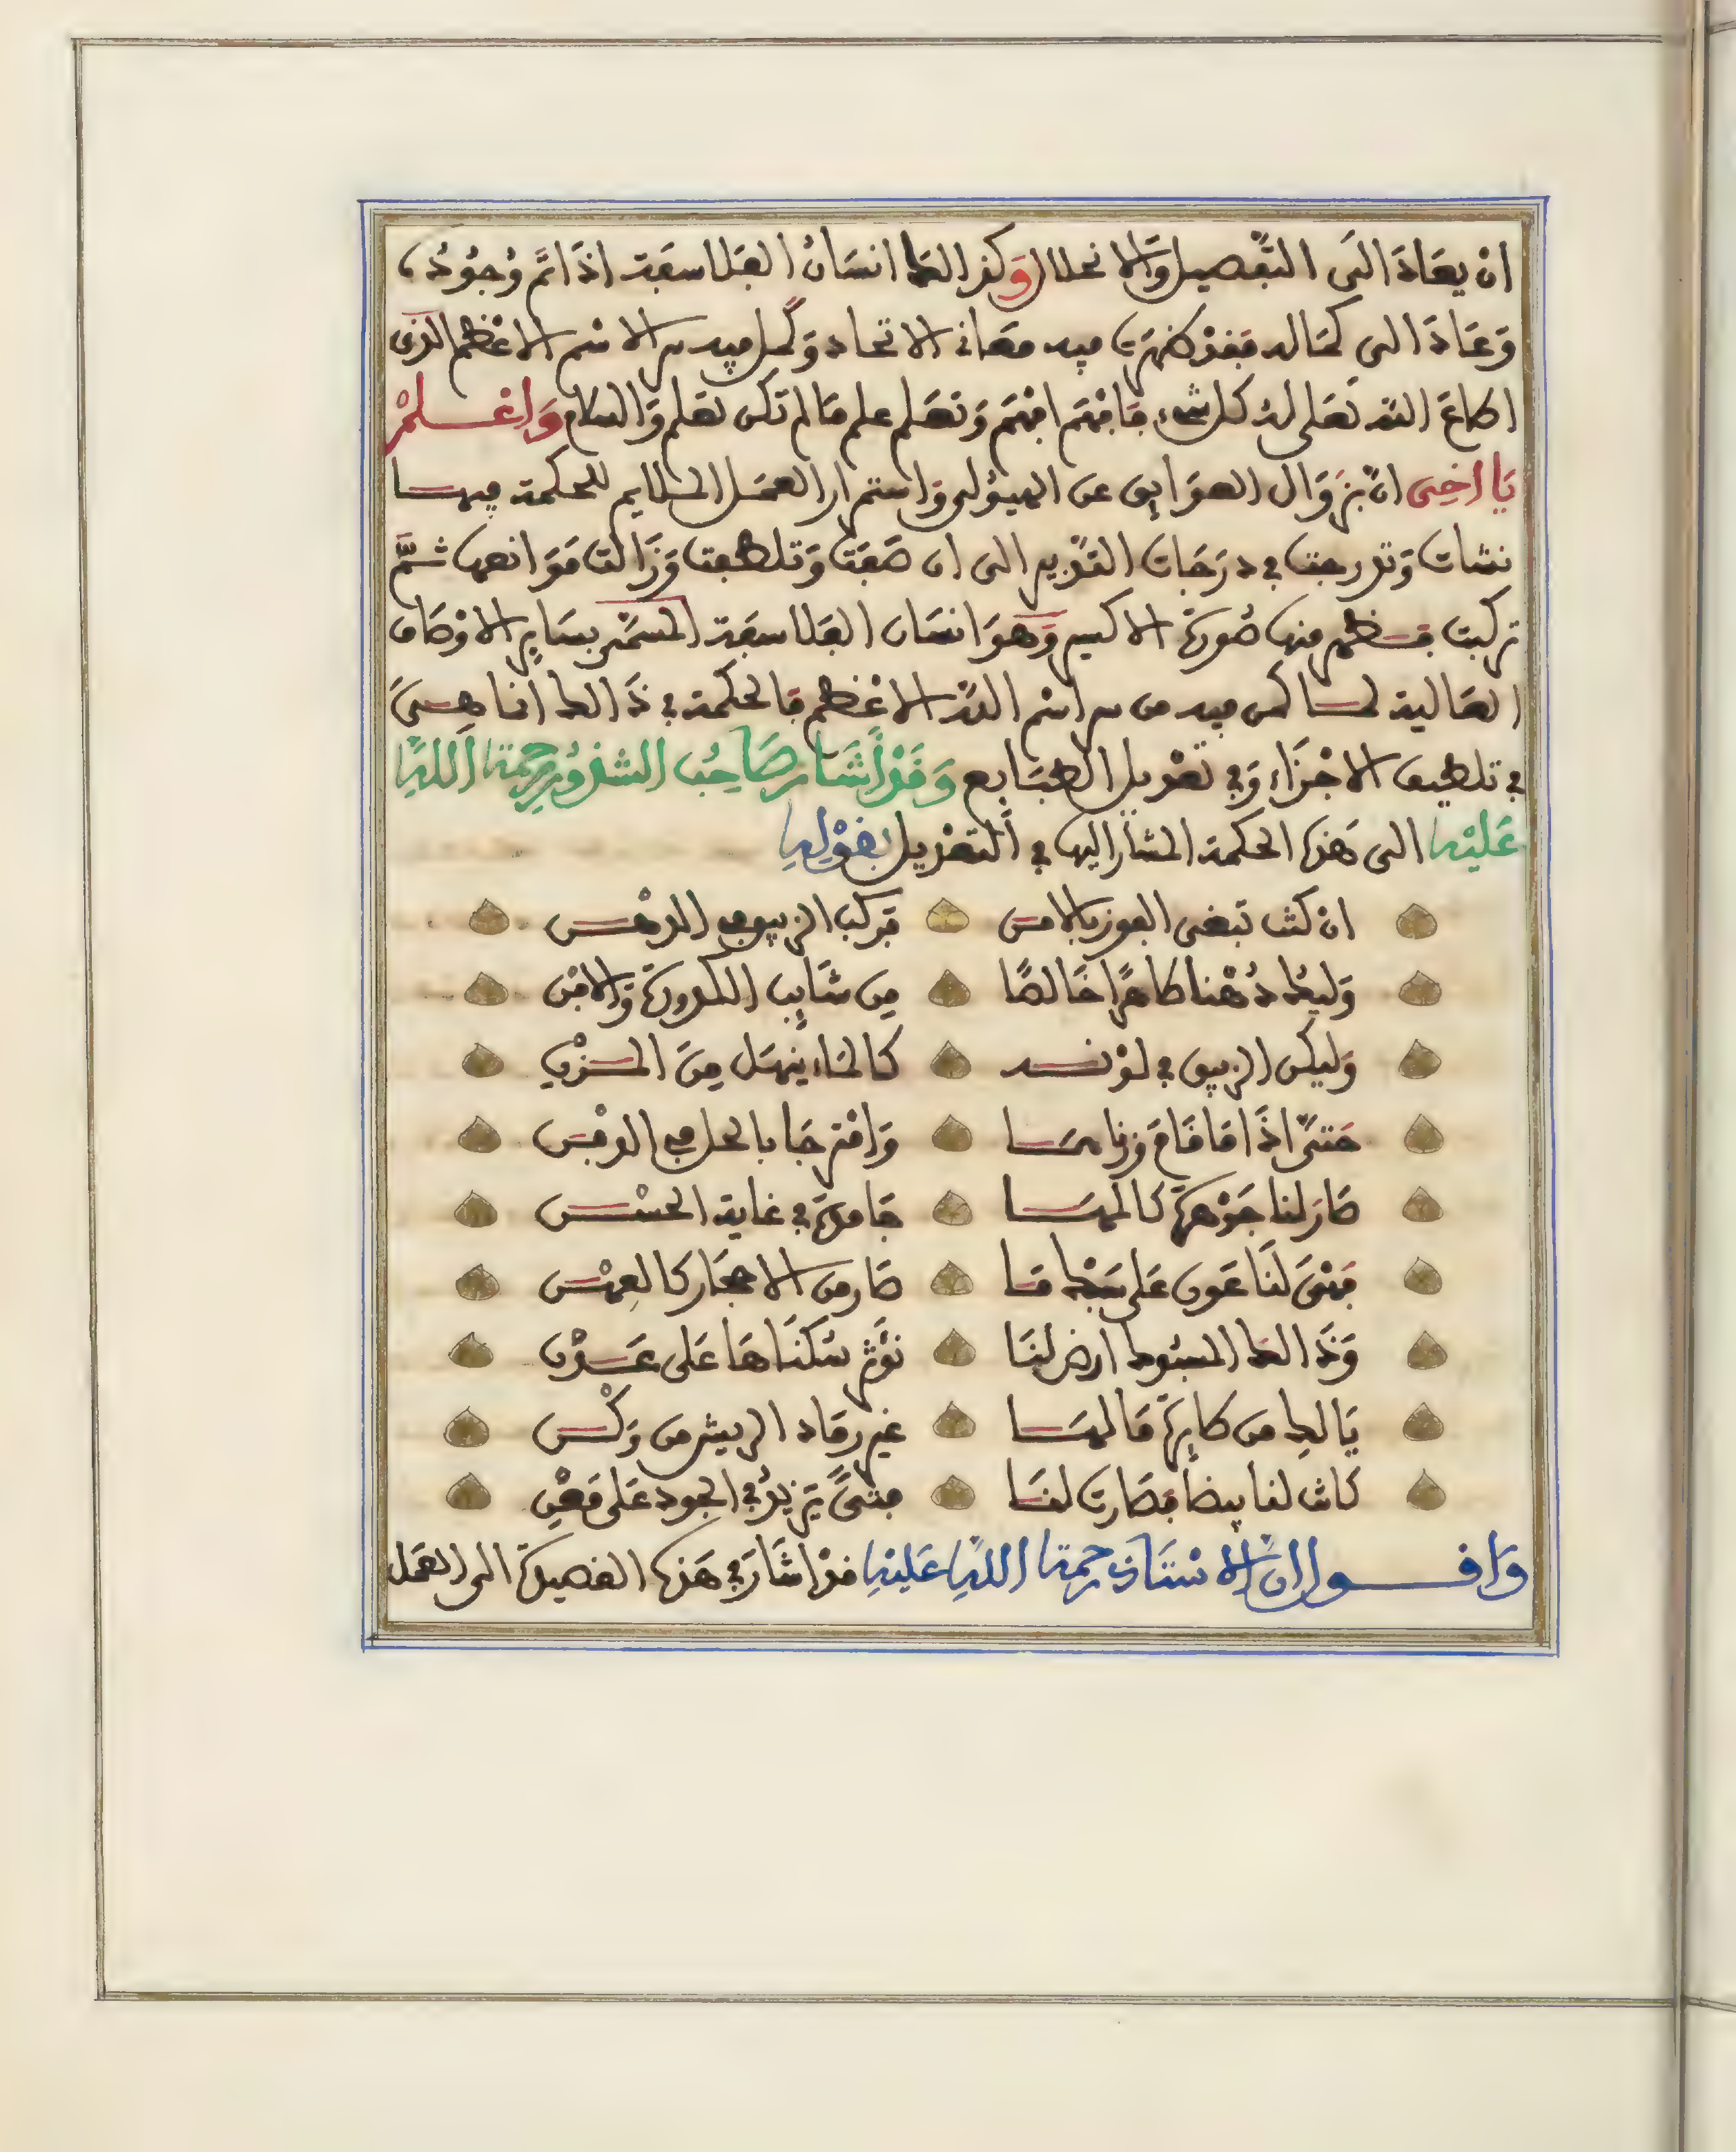 ان يعاد الى التفصيل والانحلال وكذالك انسان الفلاسفة اذا تم وجوده
وعاد الى كماله فقد ظهرت فيه معانى الاتحاد وكمل فيه سر الاسم الاعظم الذى
اطاع الله تعلى له كل شىء فافهم افهم وتعلم علم مالم تكن تعلم والسلام واعلم
يا اخى ان بزوال العوايق عن الهيولى واستمرار العمل الملايم للحكمة فيها
نشات وتدرجت في درجات التدبير الى ان صفت وتلطفت وزالت موانعها ثم
تركبت فظهر منها صورة الاكسير وهو انسان الفلاسفة المسمى بساير الاوصاف
العالية لما كمن فيه من سر اسم الله الاعظم فالحكمة في ذالك انما هي
في تلطيف الاجزاء وفي تعديل الطبايع وقد اشار صاحب الشذور رحمة الله
عليه الى هذه الحكمة المشار اليها في التعديل بقوله
ان كنت تبغى الفوز بالامن فركب الزيبق في الدهن
وليك دهنا طاهرا خالصا من شايب الكدورة والافن
وليكن الزيبق في لونه كالماء ينهل من المزن
حتى اذا ما قام وزناهما وامتزجا بالحل في الدفن
صار لنا جوهرة كالمها جامدة في غاية الحسن
فهى لنا عون على سبك ما صار من الاحجار كالعهن
وذالك المسبوك ارض لنا نوثر سكناها على عدن
يالك من طايرة مالها غير رماد الريش من وكن
كانت لنا بيضا فصارت لنا فتى يزيد في الجود على معن
واقول ان الاستاذ رحمة الله عليه قد اشار في هذه القصيدة الى العمل